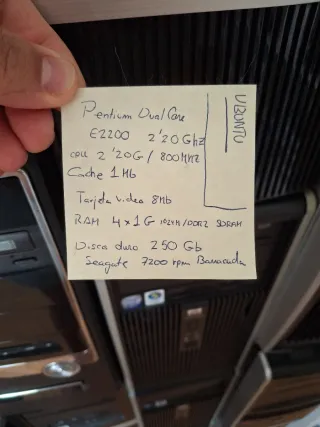 Pentium Dual Core
E2200 2'20 Ghz
CPU 2'20G / 800MHZ
Cache 1 Mb
Tarjeta video 8Mb
RAM 4x1G 1024M/DDR2 SDRAM
Disco duro 250 Gb
Seagate 7200 rpm Barracuda
UBUNTU